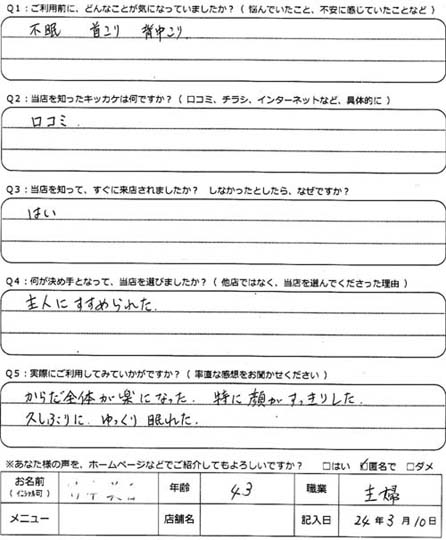 Q1：ご利用前に、どんなことが気になっていましたか？（ 悩んでいたこと、不安に感じていたことなど ）
不眠　首こり　背中こり
Q2：当店を知ったキッカケは何ですか？（ 口コミ、チラシ、インターネットなど、具体的に ）
口コミ.
Q3：当店を知って、すぐに来店されましたか？　しなかったとしたら、なぜですか？
はい
Q4：何が決め手となって、当店を選びましたか？（ 他店ではなく、当店を選んでくださった理由 ）
主人にすすめられた.
Q5：実際にご利用してみていかがですか？（ 率直な感想をお聞かせください ）
からだ全体が楽になった. 特に顔がすっきりした.
久しぶりに ゆっくり 眠れた.
※あなた様の声を、ホームページなどでご紹介してもよろしいですか？　□はい　☑匿名で　□ダメ
お名前（ｲﾆｼｬﾙ可）　年齢　43　職業　主婦
メニュー　店舗名　記入日　24年3月10日